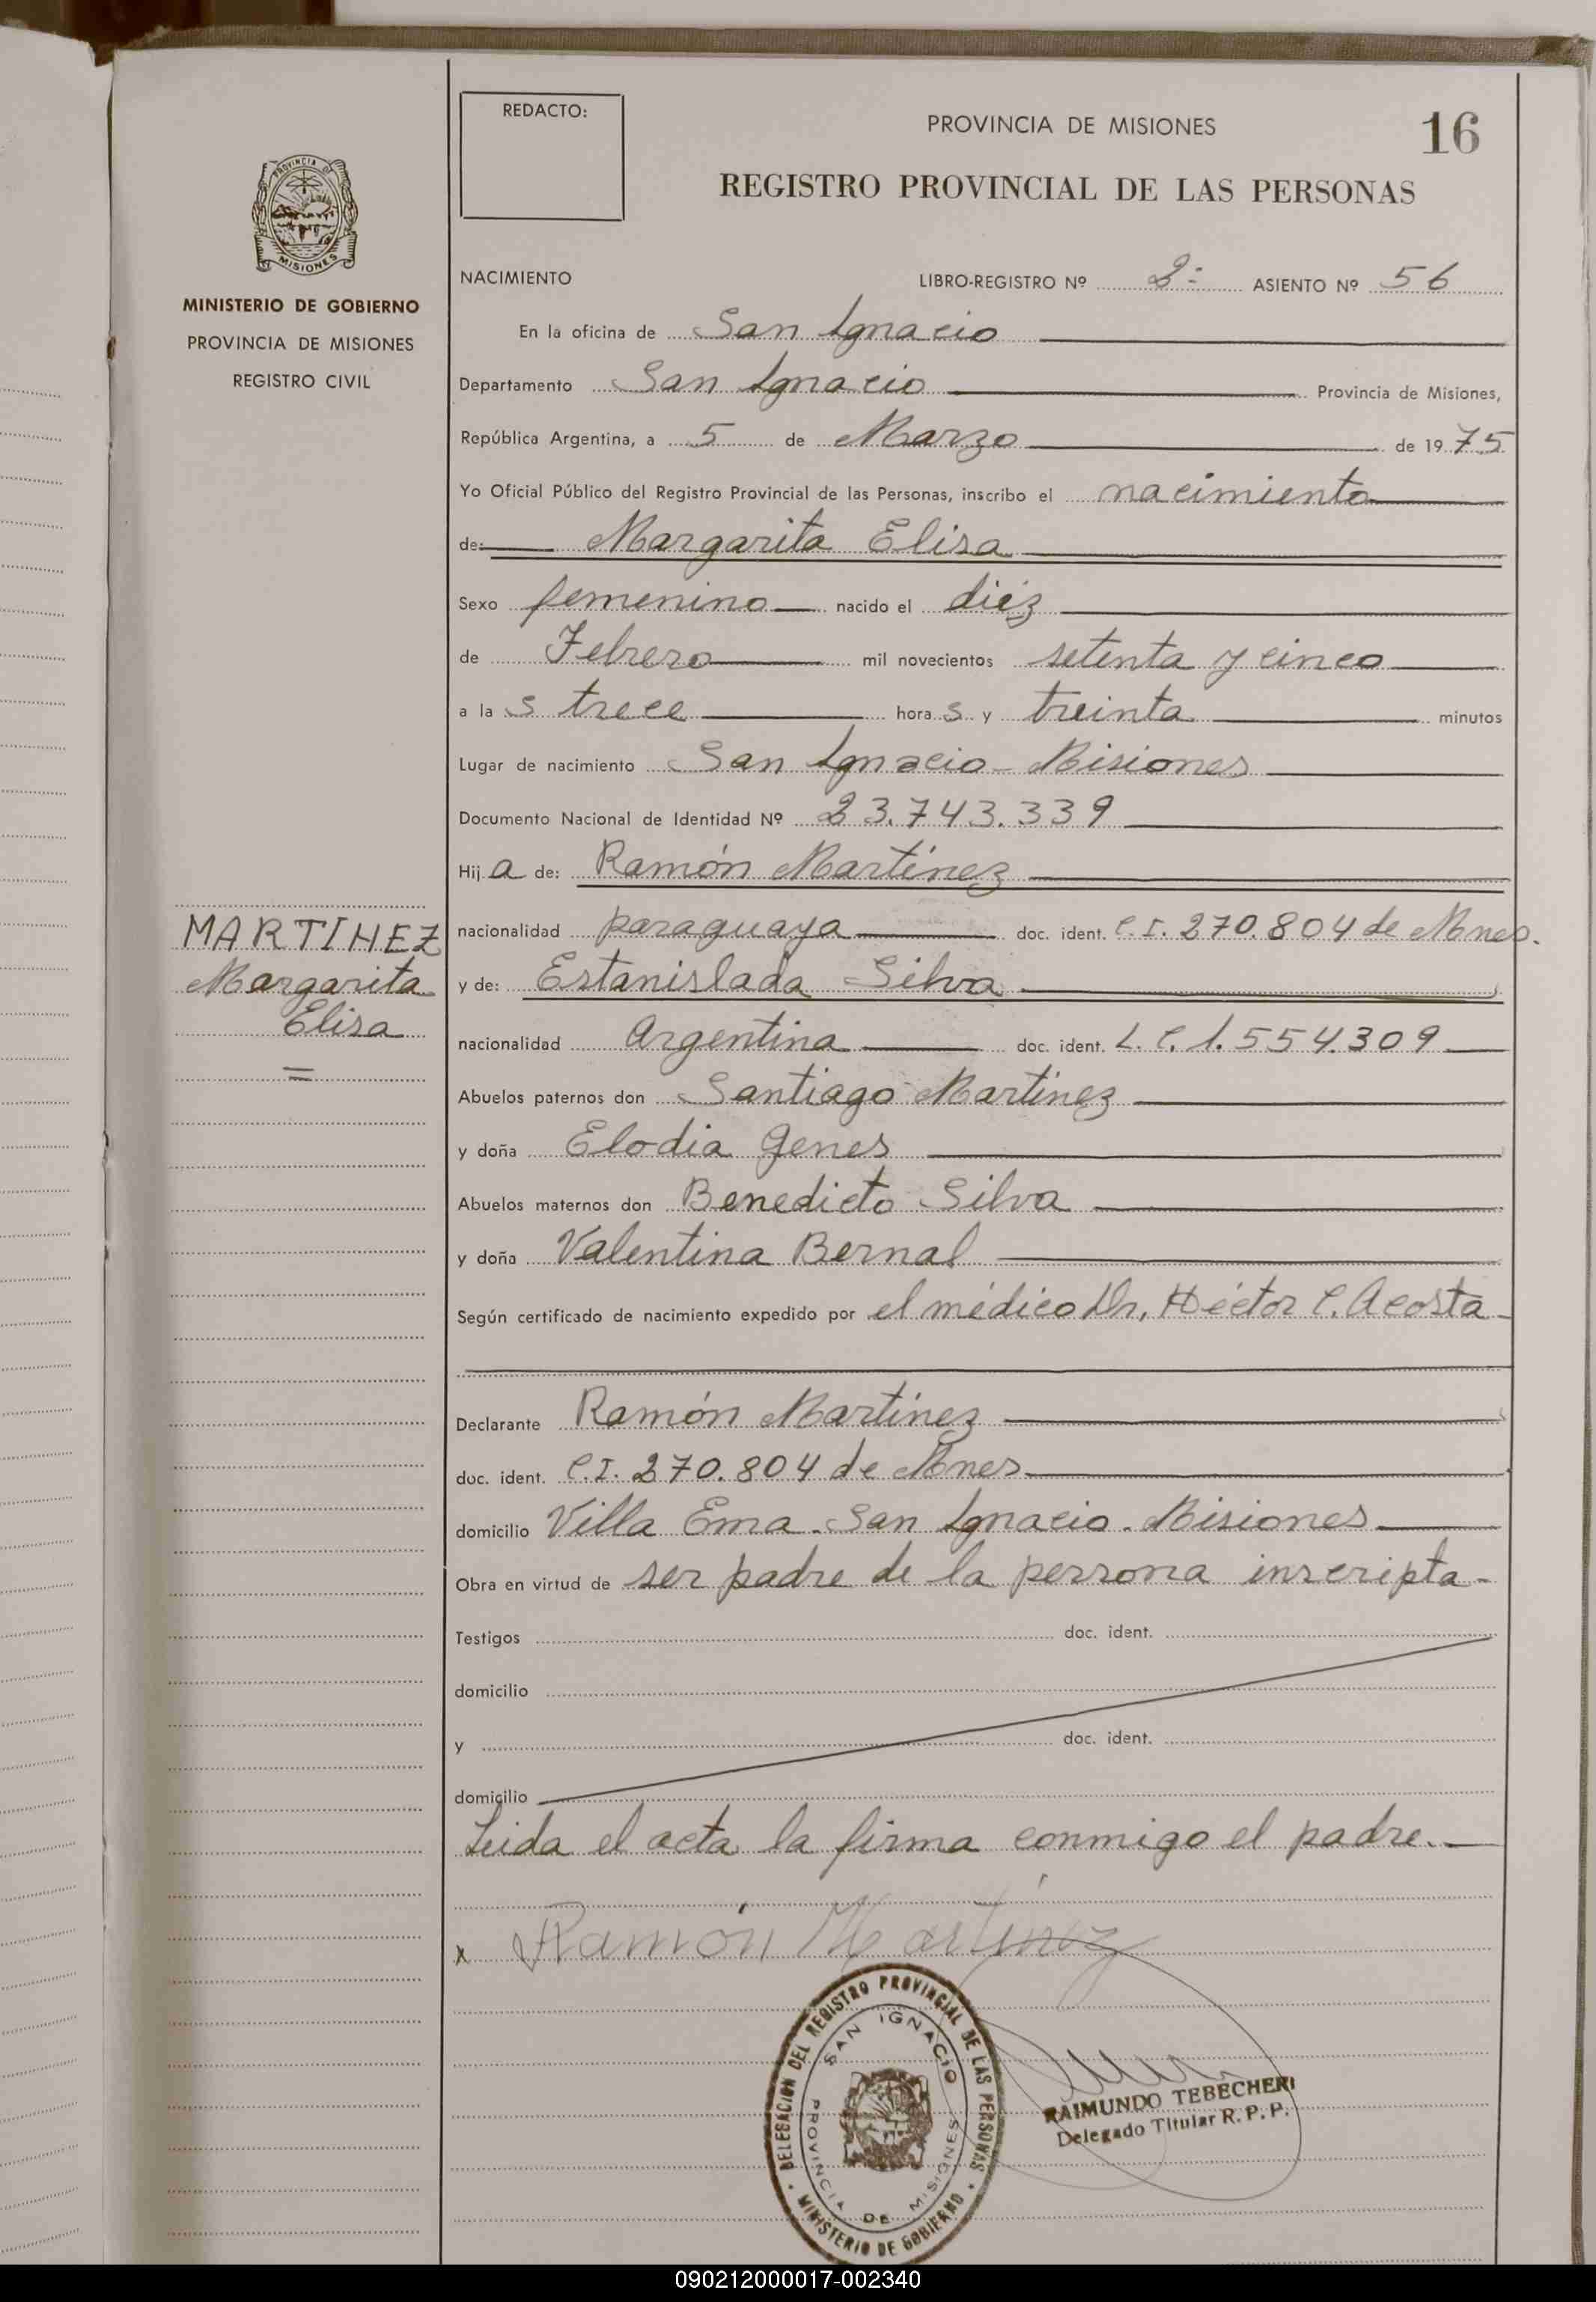 REDACTO:
PROVINCIA DE MISIONES
16
REGISTRO PROVINCIAL DE LAS PERSONAS
PROVINCIA DE
MISIONES
MINISTERIO DE GOBIERNO
PROVINCIA DE MISIONES
REGISTRO CIVIL
NACIMIENTO LIBRO-REGISTRO Nº 2º ASIENTO Nº 56
En la oficina de San Ignacio
Departamento San Ignacio Provincia de Misiones,
República Argentina, a 5 de Marzo de 1975
Yo Oficial Público del Registro Provincial de las Personas, inscribo el nacimiento
de: Margarita Elisa
Sexo femenino nacido el diéz
de Febrero mil novecientos setenta y cinco
a las trece horas y treinta minutos
Lugar de nacimiento San Ignacio - Misiones
Documento Nacional de Identidad Nº 23.743.339
Hija de: Ramón Martínez
nacionalidad paraguaya doc. ident. C.I. 270.804 de Mnes.
y de: Estanislada Silva
nacionalidad Argentina doc. ident. L.C. 1.554.309
Abuelos paternos don Santiago Martínez
y doña Elodia Genes
Abuelos maternos don Benedicto Silva
y doña Valentina Bernal
Según certificado de nacimiento expedido por el médico Dr, Héctor C. Acosta-
Declarante Ramón Martínez
doc. ident. C.I. 270.804 de Mnes
domicilio Villa Ema. San Ignacio. Misiones
Obra en virtud de ser padre de la persona inscripta-
Testigos doc. ident.
domicilio
y doc. ident.
domicilio
Leida el acta la firma conmigo el padre.-
x Ramón Martínez
MARTINEZ
Margarita
Elisa
=
DELEGACION DEL REGISTRO PROVINCIAL DE LAS PERSONAS
SAN IGNACIO
PROVINCIA DE MISIONES
MINISTERIO DE GOBIERNO
RAIMUNDO TEBECHERI
Delegado Titular R. P. P.
090212000017-002340